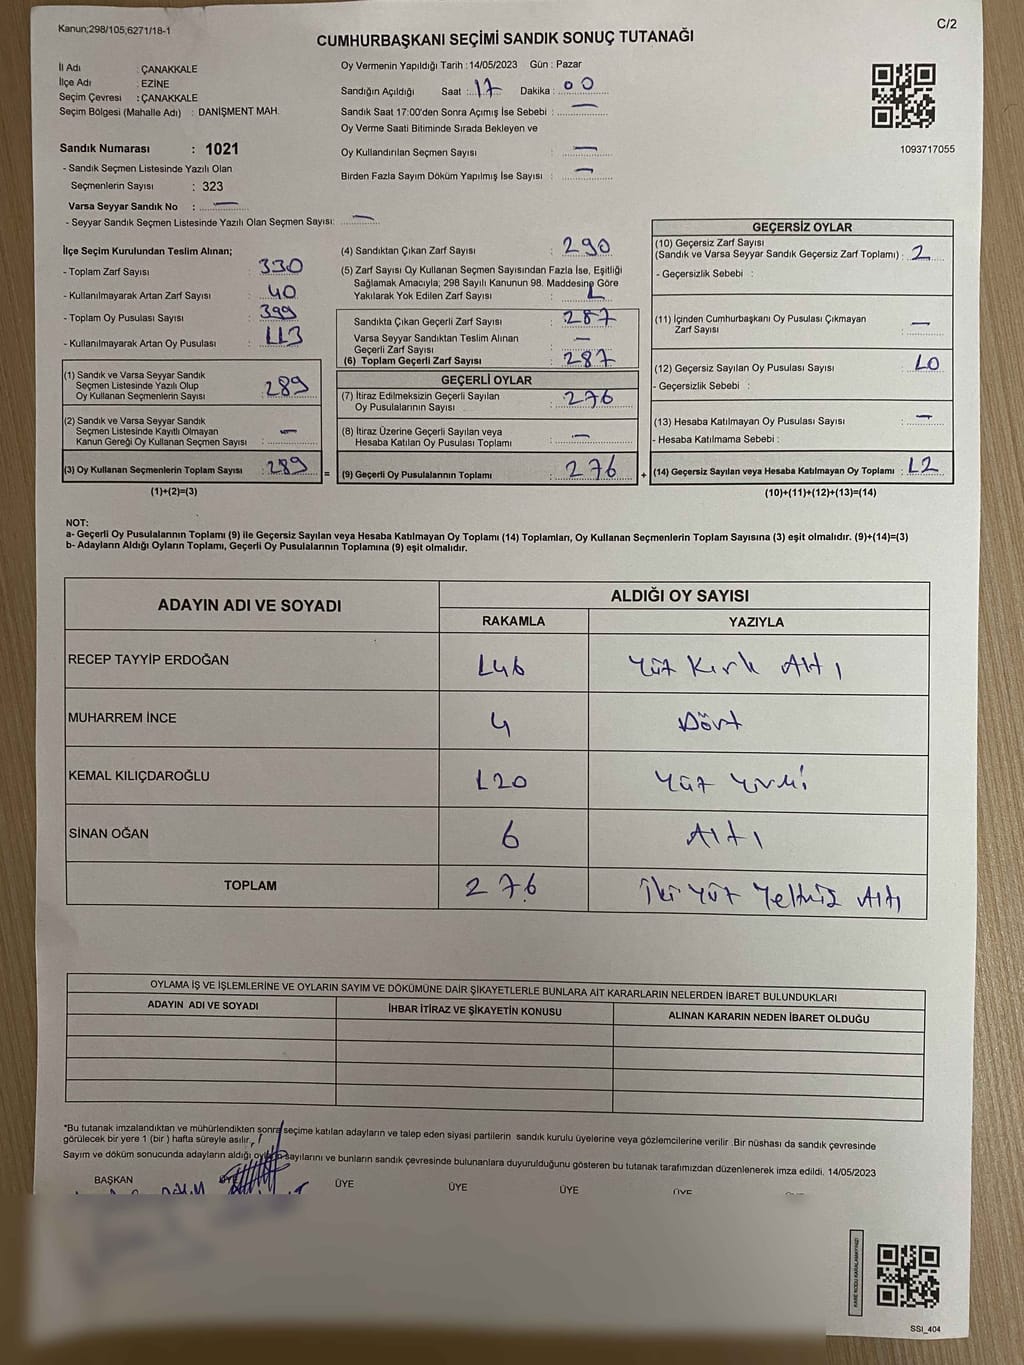 Kanun;298/105;6271/18-1
C/2
CUMHURBAŞKANI SEÇİMİ SANDIK SONUÇ TUTANAĞI
İl Adı : ÇANAKKALE
İlçe Adı : EZİNE
Seçim Çevresi : ÇANAKKALE
Seçim Bölgesi (Mahalle Adı) : DANİŞMENT MAH.
Sandık Numarası : 1021
- Sandık Seçmen Listesinde Yazılı Olan
Seçmenlerin Sayısı : 323
Varsa Seyyar Sandık No : —
- Seyyar Sandık Seçmen Listesinde Yazılı Olan Seçmen Sayısı: —
Oy Vermenin Yapıldığı Tarih : 14/05/2023 Gün : Pazar
Sandığın Açıldığı Saat : 17 Dakika : 00
Sandık Saat 17:00'den Sonra Açımış İse Sebebi : —
Oy Verme Saati Bitiminde Sırada Bekleyen ve
Oy Kullandırılan Seçmen Sayısı : —
Birden Fazla Sayım Döküm Yapılmış İse Sayısı : —
1093717055
İlçe Seçim Kurulundan Teslim Alınan;
- Toplam Zarf Sayısı : 330
- Kullanılmayarak Artan Zarf Sayısı : 40
- Toplam Oy Pusulası Sayısı : 399
- Kullanılmayarak Artan Oy Pusulası : 113
(1) Sandık ve Varsa Seyyar Sandık
Seçmen Listesinde Yazılı Olup
Oy Kullanan Seçmenlerin Sayısı : 289
(2) Sandık ve Varsa Seyyar Sandık
Seçmen Listesinde Kayıtlı Olmayan
Kanun Gereği Oy Kullanan Seçmen Sayısı : —
(3) Oy Kullanan Seçmenlerin Toplam Sayısı : 289
(1)+(2)=(3)
=
(4) Sandıktan Çıkan Zarf Sayısı : 290
(5) Zarf Sayısı Oy Kullanan Seçmen Sayısından Fazla İse, Eşitliği
Sağlamak Amacıyla; 298 Sayılı Kanunun 98. Maddesine Göre
Yakılarak Yok Edilen Zarf Sayısı : 1
Sandıkta Çıkan Geçerli Zarf Sayısı : 287
Varsa Seyyar Sandıktan Teslim Alınan
Geçerli Zarf Sayısı : —
(6) Toplam Geçerli Zarf Sayısı : 287
GEÇERLİ OYLAR
(7) İtiraz Edilmeksizin Geçerli Sayılan
Oy Pusulalarının Sayısı : 276
(8) İtiraz Üzerine Geçerli Sayılan veya
Hesaba Katılan Oy Pusulası Toplamı : —
(9) Geçerli Oy Pusulalarının Toplamı : 276
+
GEÇERSİZ OYLAR
(10) Geçersiz Zarf Sayısı
(Sandık ve Varsa Seyyar Sandık Geçersiz Zarf Toplamı) : 2
- Geçersizlik Sebebi :
(11) İçinden Cumhurbaşkanı Oy Pusulası Çıkmayan
Zarf Sayısı : —
(12) Geçersiz Sayılan Oy Pusulası Sayısı : 10
- Geçersizlik Sebebi :
(13) Hesaba Katılmayan Oy Pusulası Sayısı : —
- Hesaba Katılmama Sebebi :
(14) Geçersiz Sayılan veya Hesaba Katılmayan Oy Toplamı : 12
(10)+(11)+(12)+(13)=(14)
NOT:
a- Geçerli Oy Pusulalarının Toplamı (9) ile Geçersiz Sayılan veya Hesaba Katılmayan Oy Toplamı (14) Toplamları, Oy Kullanan Seçmenlerin Toplam Sayısına (3) eşit olmalıdır. (9)+(14)=(3)
b- Adayların Aldığı Oyların Toplamı, Geçerli Oy Pusulalarının Toplamına (9) eşit olmalıdır.
ADAYIN ADI VE SOYADI
ALDIĞI OY SAYISI
RAKAMLA YAZIYLA
RECEP TAYYİP ERDOĞAN 146 Yüz Kırk Altı
MUHARREM İNCE 4 Dört
KEMAL KILIÇDAROĞLU 120 Yüz Yirmi
SİNAN OĞAN 6 Altı
TOPLAM 276 İki Yüz Yetmiş Altı
OYLAMA İŞ VE İŞLEMLERİNE VE OYLARIN SAYIM VE DÖKÜMÜNE DAİR ŞİKAYETLERLE BUNLARA AİT KARARLARIN NELERDEN İBARET BULUNDUKLARI
ADAYIN ADI VE SOYADI İHBAR İTİRAZ VE ŞİKAYETİN KONUSU ALINAN KARARIN NEDEN İBARET OLDUĞU
*Bu tutanak imzalandıktan ve mühürlendikten sonra seçime katılan adayların ve talep eden siyasi partilerin sandık kurulu üyelerine veya gözlemcilerine verilir .Bir nüshası da sandık çevresinde
görülecek bir yere 1 (bir ) hafta süreyle asılır.
Sayım ve döküm sonucunda adayların aldığı oyların sayılarını ve bunların sandık çevresinde bulunanlara duyurulduğunu gösteren bu tutanak tarafımızdan düzenlenerek imza edildi. 14/05/2023
BAŞKAN ÜYE ÜYE ÜYE ÜYE ÜYE
KARE KODU KARALAMAYINIZ!
SSI_404